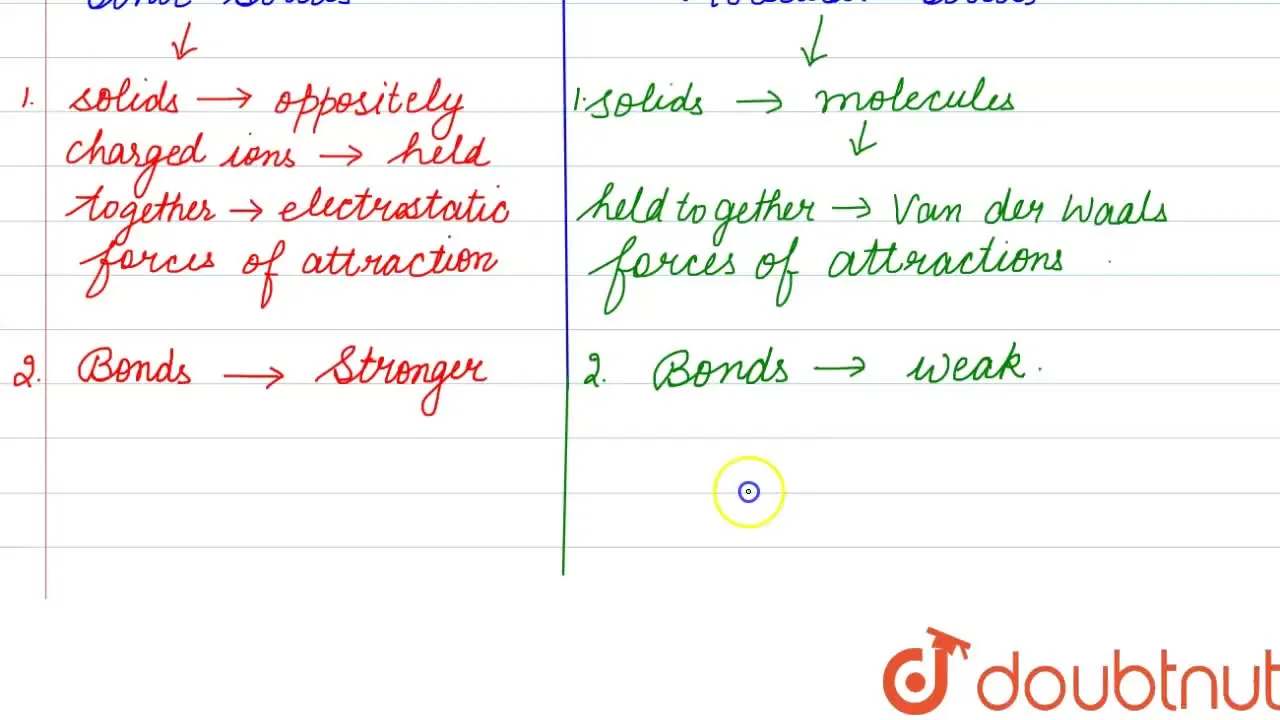 Ionic Solids
Molecular Solids
↓
↓
1. solids → oppositely
charged ions → held
together → electrostatic
forces of attraction
2. Bonds → Stronger
1. solids → molecules
↓
held together → Van der Waals
forces of attractions
2. Bonds → weak.
doubtnut